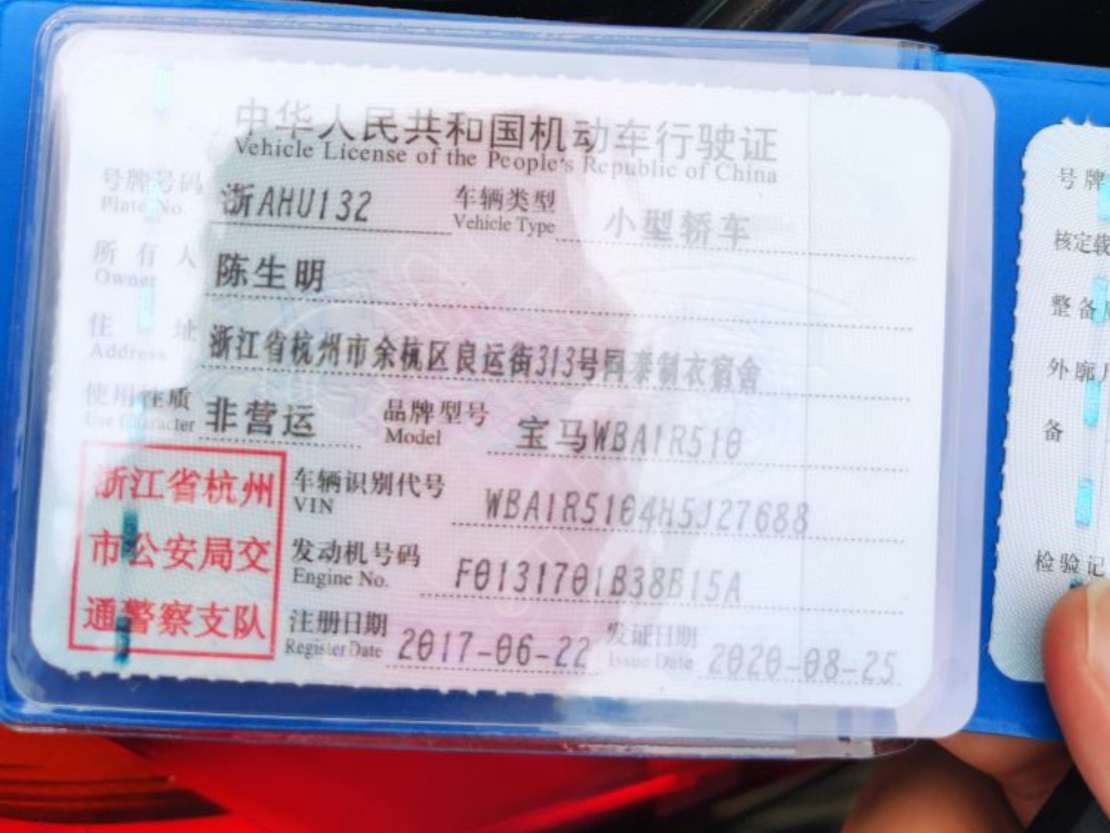 中华人民共和国机动车行驶证
Vehicle License of the People's Republic of China
号牌号码 浙AHU132 车辆类型 小型轿车
Plate No. Vehicle Type
所有人 陈生明
Owner
住址 浙江省杭州市余杭区良运街313号同泰制衣宿舍
Address
使用性质 非营运 品牌型号 宝马WBA1R510
Use Character Model
浙江省杭州
市公安局交
通警察支队
车辆识别代号 WBA1R5104H5J27688
VIN
发动机号码 F0131701B38B15A
Engine No.
注册日期 2017-06-22 发证日期 2020-08-25
Register Date Issue Date
号牌
核定载
整备
外廓
备
检验记